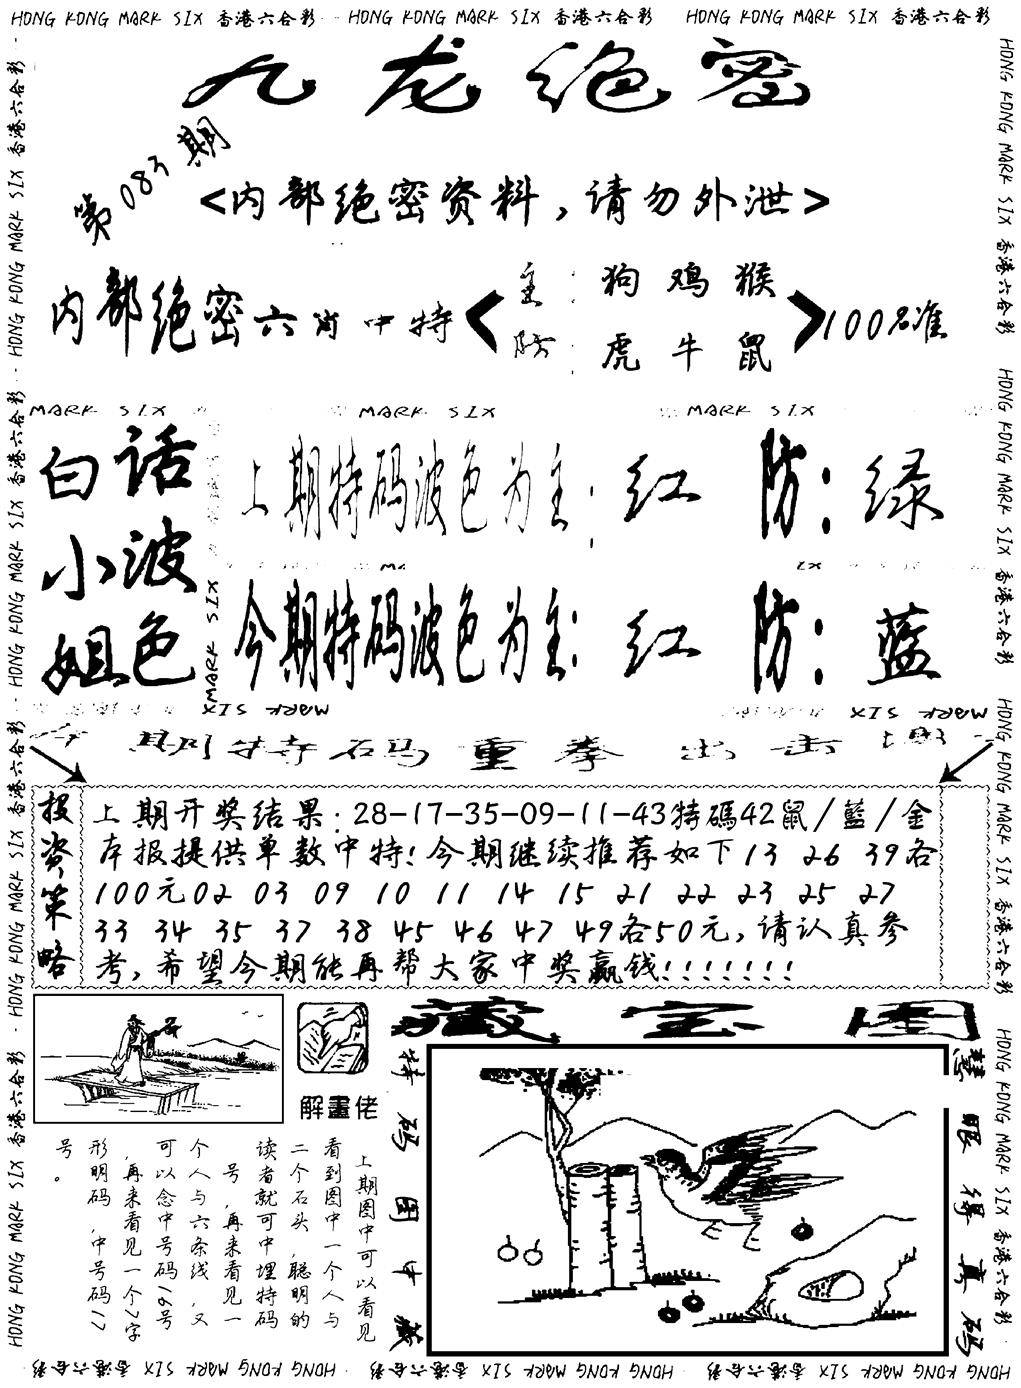 HONG KONG MARK SIX 香港六合彩 HONG KONG MARK SIX 香港六合彩 HONG KONG MARK SIX 香港六合彩
九龙绝密
第083期
<内部绝密资料，请勿外泄>
内部绝密六肖中特
主：狗鸡猴
防：虎牛鼠
100%准
MARK SIX MARK SIX MARK SIX
白话小姐
波色
上期特码波色为主：红 防：绿
今期特码波色为主：红 防：蓝
MARK SIX
MARK SIX MARK SIX
今期特码重拳出击
投资策略
上期开奖结果：28-17-35-09-11-43特碼42鼠/藍/金
本报提供单数中特！今期继续推荐如下13 26 39各
100元02 03 09 10 11 14 15 21 22 23 25 27
33 34 35 37 38 45 46 47 49各50元，请认真参
考，希望今期能再帮大家中奖赢钱！！！！！！！
解畫佬
上期图中可以看见
看到图中一个人与
二个石头，聪明的
读者就可中埋特码
号，再来看见一
个人与六条线，又
可以念中号码19号
，再来看见一个7字
形明码，中号码17
号。
藏宝图
特码图中藏
慧眼得真码
HONG KONG MARK SIX 香港六合彩 HONG KONG MARK SIX 香港六合彩 HONG KONG MARK SIX 香港六合彩